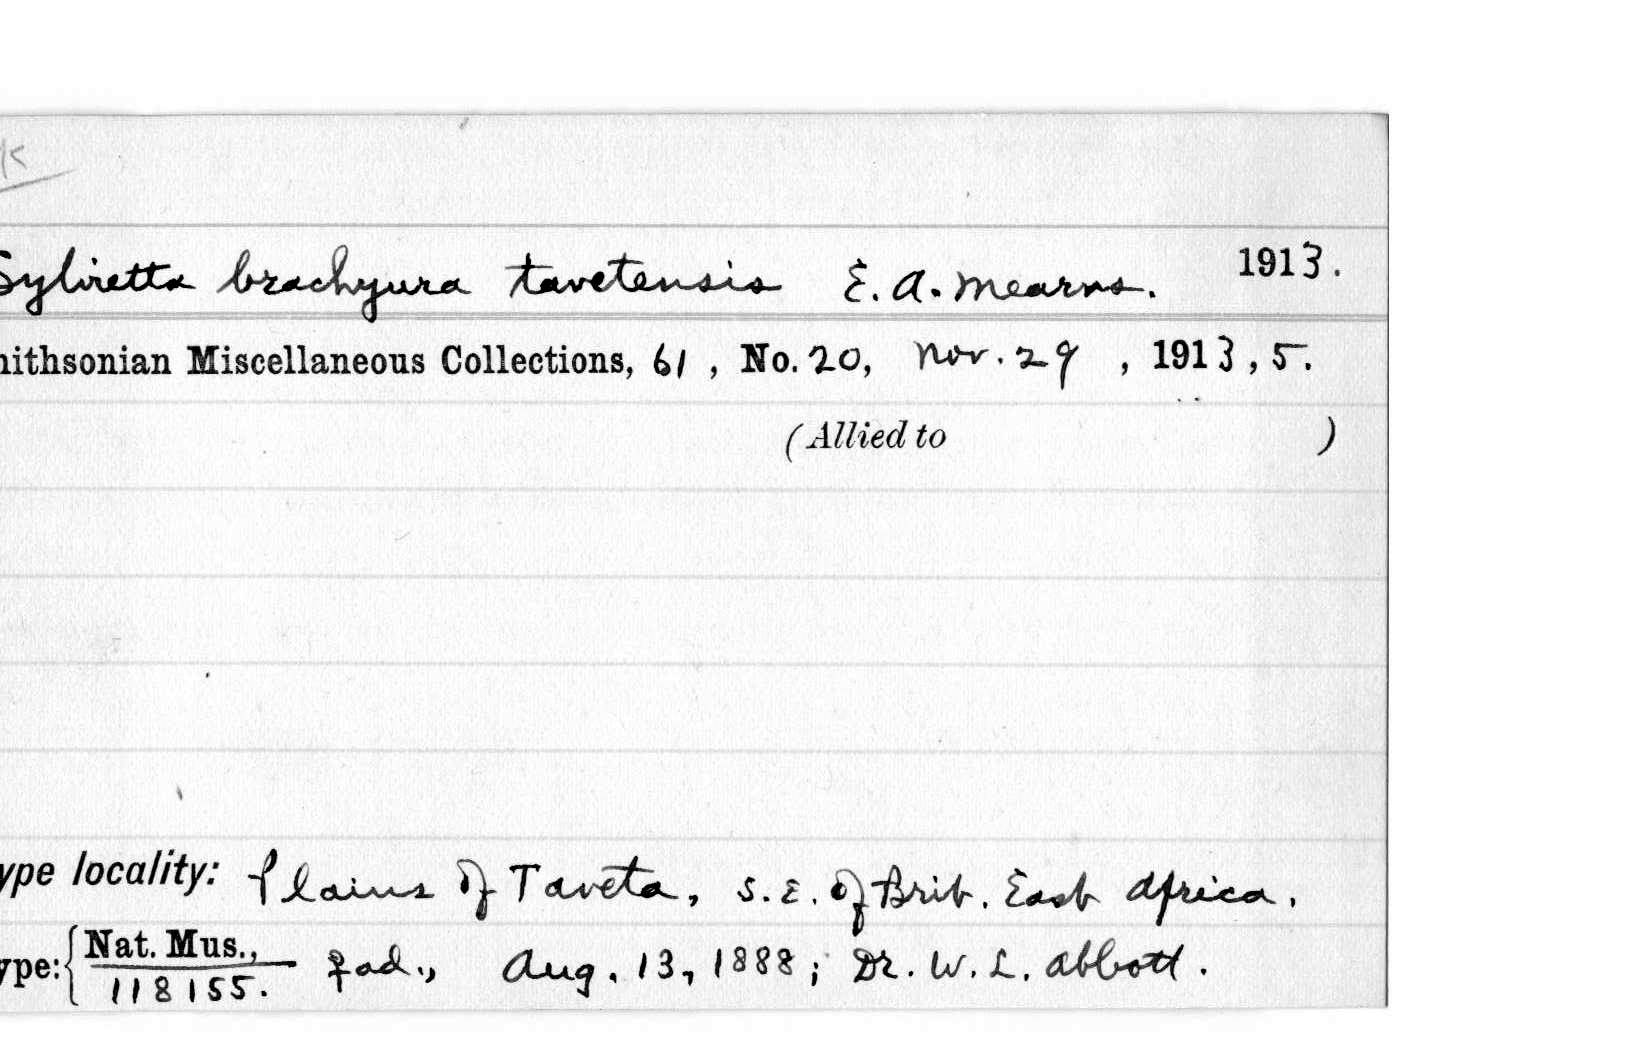 k
Sylvietta brachyura tavetensis E. A. Mearns. 1913.
nithsonian Miscellaneous Collections, 61, No. 20, Nov. 29, 1913, 5.
(Allied to )
ype locality: Plains of Taveta, S. E. of Brit. East Africa.
ype: { Nat. Mus., ♀ ad., Aug. 13, 1888; Dr. W. L. Abbott.
118155.